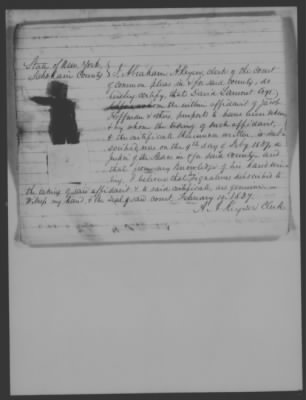 State of New York
Schoharie County } I, Abraham A Keyser, clerk of the court
of common pleas in & for said county, do
hereby certify, that David Lamont Esqr
before whom the within affidavit of Jacob
Hoffman & others purports to have been taken,
& by whom the taking of such affidavit,
& the certificate thereunder written is sub-
scribed, was on the 9th day of Feby 1837, a
Judge of the Peace in & for said county and
that from my knowledge of his handwri-
ting, I believe that the signatures subscribed to
the taking of said affidavit & to said certificate, are genuine.
Witness my hand, & the seal of said court, February 10. 1837.
A. A. Keyser Clerk